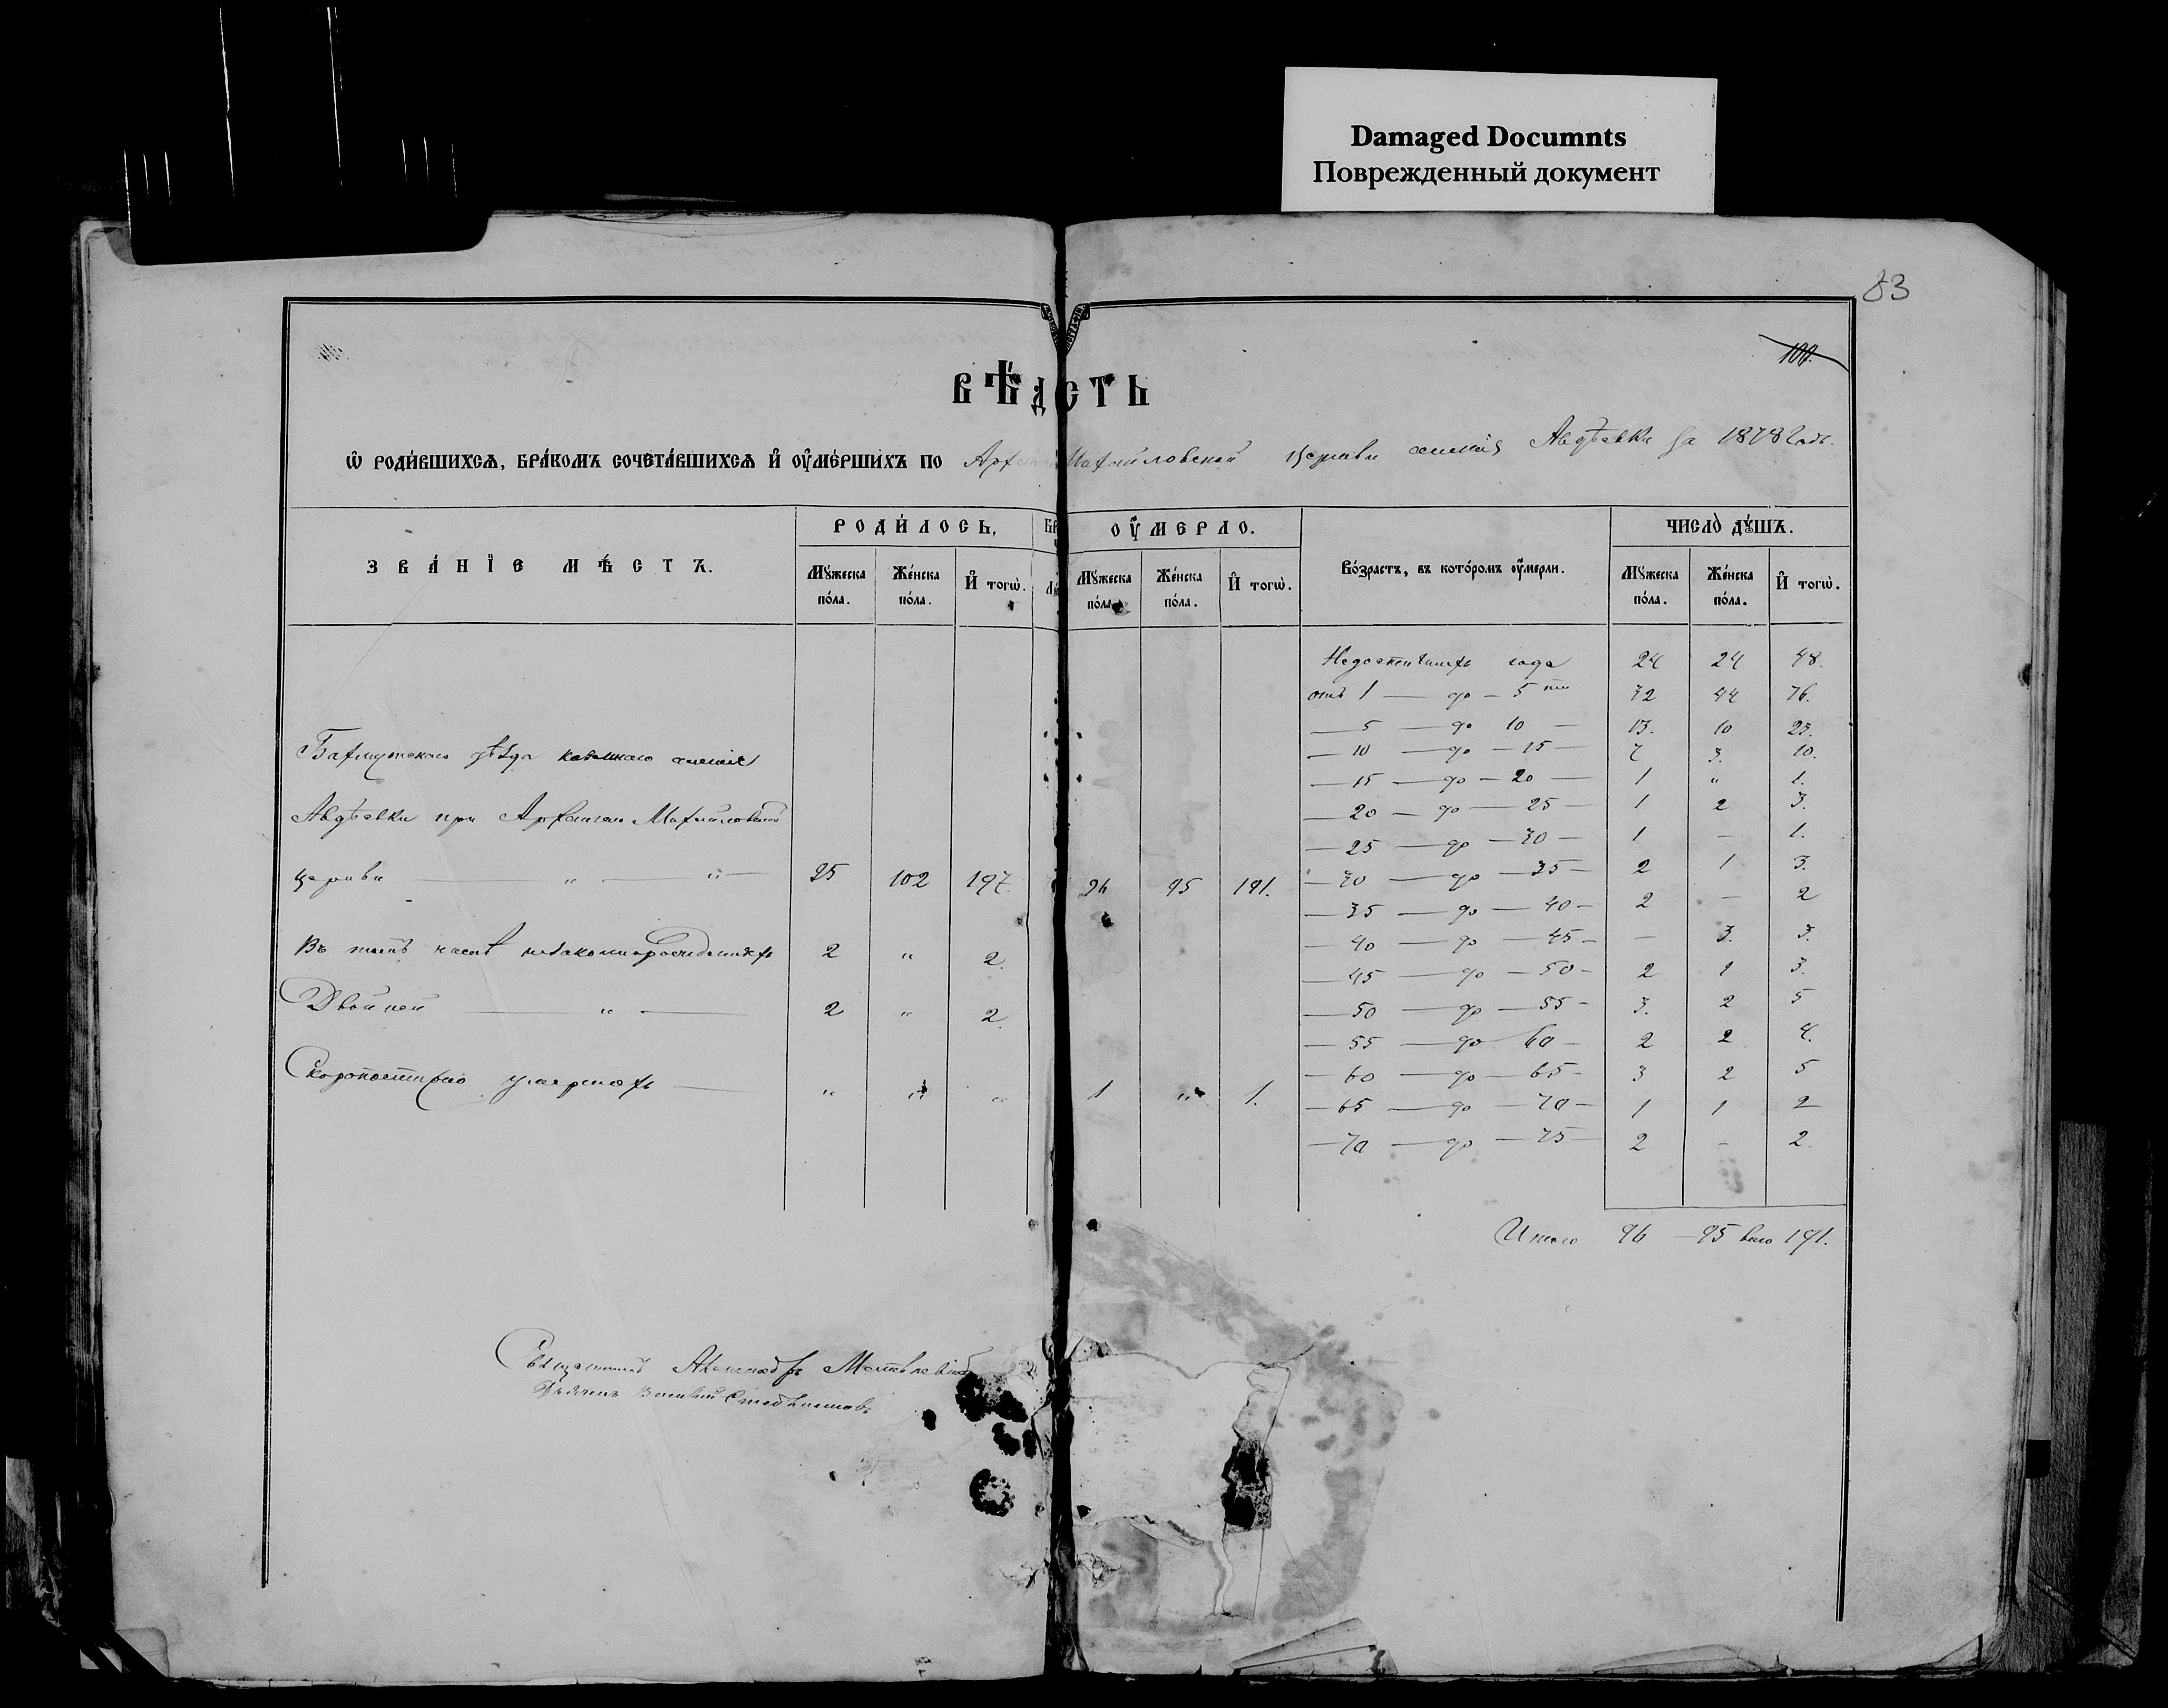 Damaged Documnts
Поврежденный документ
83
100.
ВѢДСТЬ
Ѡ РОДИВШИХСѦ, БРАКОМЪ СОЧЕТАВШИХСѦ И ОУМЕРШИХЪ ПО Арх Михайловской церкви имѣнія Авдѣевки за 1878 годъ.
ЗВАНІЕ МѢСТЪ.
РОДИЛОСЬ,
Мꙋжеска пола.
Женска пола.
И тогѡ.
ОУМЕРЛО.
Мꙋжеска пола.
Женска пола.
И тогѡ.
Возрастъ, въ которомъ оумерли.
ЧИСЛО ДꙊШЪ.
Мꙋжеска пола.
Женска пола.
И тогѡ.
Недостигшихъ года 24 24 48.
отъ 1 — до — 5 ти 32 44 76.
— 5 — до 10 — 13. 10 23.
— 10 — до — 15 — 7 3. 10.
— 15 — до — 20 — 1 " 1.
— 20 — до — 25 — 1 2 3.
— 25 — до — 30 — 1 — 1.
— 30 — до — 35 — 2 1 3.
— 35 — до — 40 — 2 — 2
— 40 — до — 45 — — 3. 3.
— 45 — до — 50 — 2 1 3.
— 50 — до — 55 — 3. 2 5
— 55 — до 60 — 2 2 4.
— 60 — до — 65 — 3 2 5
— 65 — до — 70 — 1 1 2
— 70 — до — 75 — 2 — 2.
Бахмутскаго уѣзда казеннаго имѣнія
Авдѣевки при Архангело Михайловской
церкви — " — " — 95 102 197. 96 95 191.
Въ томъ числѣ незаконнорожденныхъ 2 " 2.
Двойней — " — 2 " 2.
Скоропостижно умершихъ — " " " 1 " 1.
Итого 96 — 95 всего 191.
Священникъ Александръ
Дьячекъ Василій